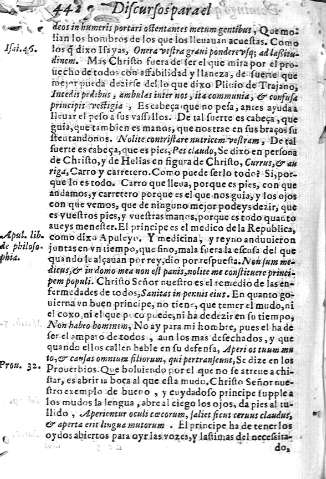 442 Discursos para el
deos in humeris portari ostentantes metum gentibus, Que mo-
tian los hombros de los que los lleuauan acuestas. Como
Isai. 46. los q̃ dixo Isayas, Onera vestra grani pondere vsq; ad lassitu-
dinem. Mas Christo fuera de ser el que mira por el pro
uecho de todos con afabilidad y llaneza, de suerte que
mejor pueda dezirse del lo que dixo Plinio de Trajano,
Incedis pedibus, ambulas inter nos, ita communia, & confusa
principis vestigia, Es cabeça que no pesa, antes ayuda a
lleuar el peso a sus vassallos. De tal suerte es cabeça, que
guia, que tambien es manos, que nos trae en sus braços su
stentandonos. Nolite contristare nutricem vestram, De tal
suerte es cabeça, que es pies, Pes claudo, Se dixo en persona
de Christo, y de Helias en figura de Christo, Currus, & au
riga, Carro y carretero. Como puede ser lo todo? Si, por-
que lo es todo. Carro que lleua, porque es pies, con que
andamos, y carretero porque es el que nos guia, y los ojos
con que vemos, que de ninguno mejor podeys dezir, que
es vuestros pies, y vuestras manos, porque es todo quanto
aueys menester. El principe es el medico de la Republica,
Apul. lib. como dixo Apuleyo. Y medicina, y reyno anduuieron
de philoso- juntas en vn tiempo, que sino, mala fuera la escusa del que
phia. quando le alçauan por rey, dio por respuesta. Non sum me
dicus, & in domo mea non est panis, nolite me constituere princi-
pem populi. Christo Señor nuestro es el remedio de las en-
fermedades de todos, Sanitas in pennis eius. En quanto go-
uierna vn buen principe, no tiene que temer el mudo, ni
el coxo, ni el que poco puede, ni ha de dezir en su tiempo,
Non habeo hominem, No ay para mi hombre, pues el ha de
ser el amparo de todos, aun los mas desechados, y que
quando ellos callen hable en su defensa, Aperi os tuum mu
Prou. 32. to, & causas omnium filiorum, qui pertranseunt, Se dize en los
Prouerbios. Que boluiendo por el que no se atreue a chi-
star, es abrir la boca al que esta mudo. Christo Señor nue-
stro exemplo de bueno, y cuydadoso principe supple a
los mudos la lengua, abre al ciego los ojos, da pies al tu-
llido, Aperientur oculi cæcorum, saliet sicut ceruus claudus,
& aperta erit lingua mutorum. El principe ha de tener los
oydos abiertos para oyr las vozes, y lastimas del necesita-
do,